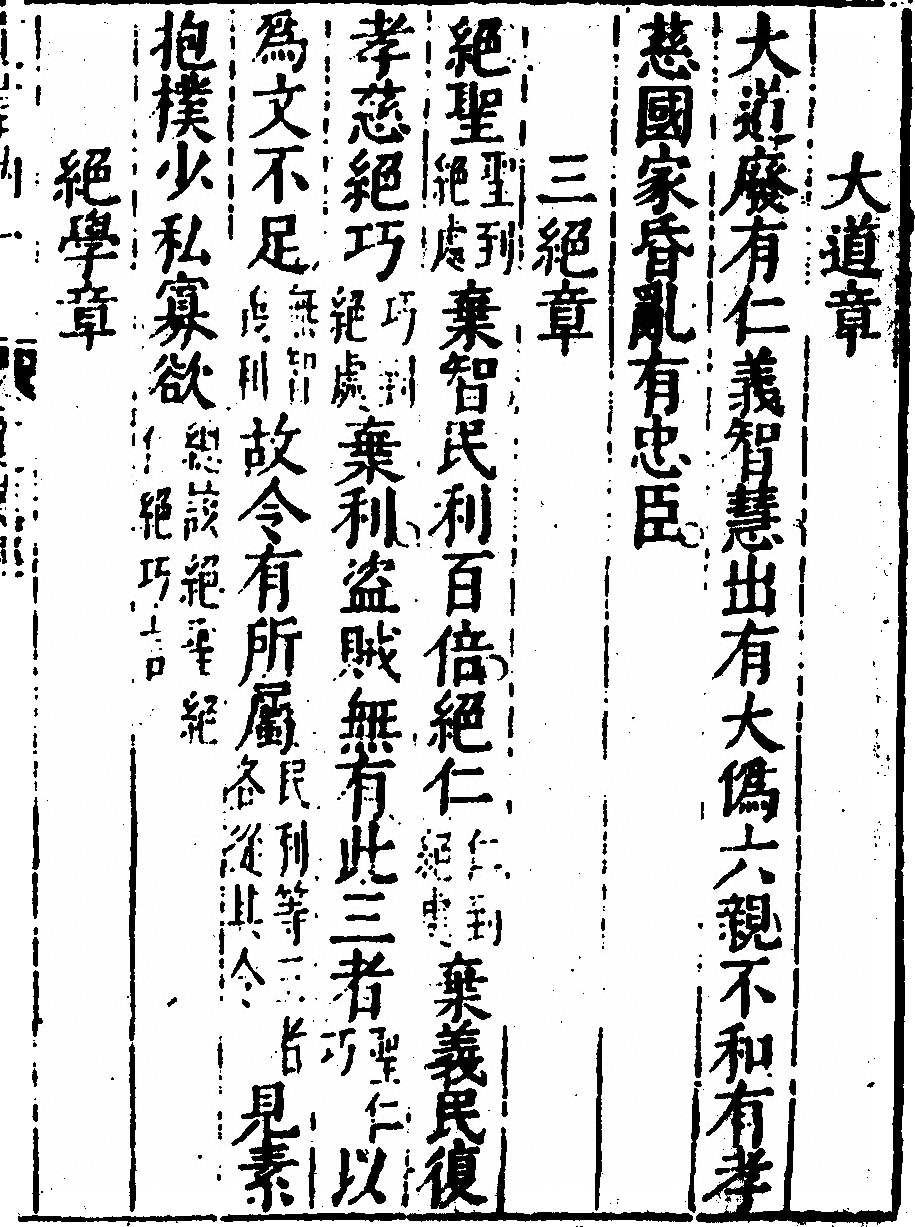 大道章
大道廢有仁義智慧出有大僞六親不和有孝
慈國家昏亂有忠臣
三絕章
絕聖聖到絕處棄智民利百倍絕仁仁到絕處棄義民復
孝慈絕巧巧到絕處棄利盜賊無有此三者聖仁巧以
爲文不足無智民利故令有所屬民利等三者各從其令見素
抱樸少私寡欲總該絕聖絕仁絕巧言
絕學章